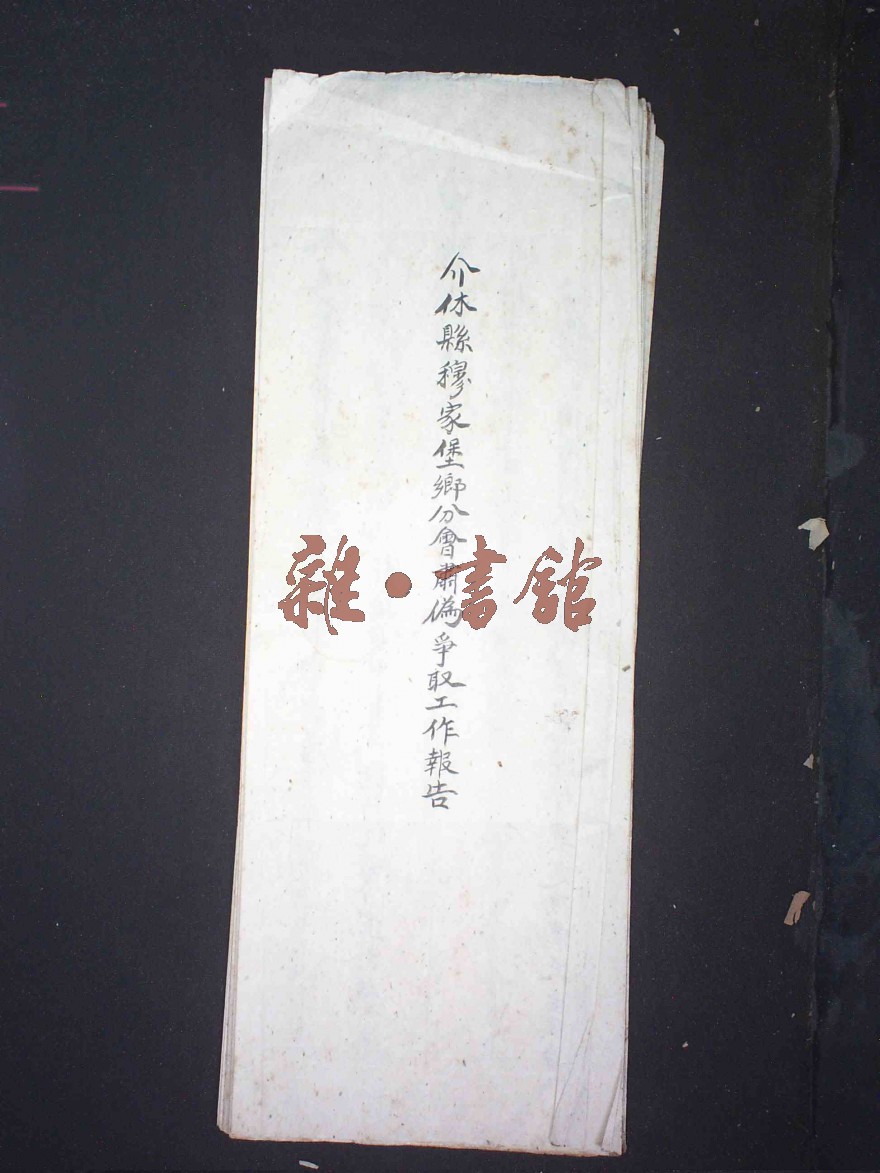 介休縣穆家堡鄉分會肅偽爭取工作報告
雜·書館